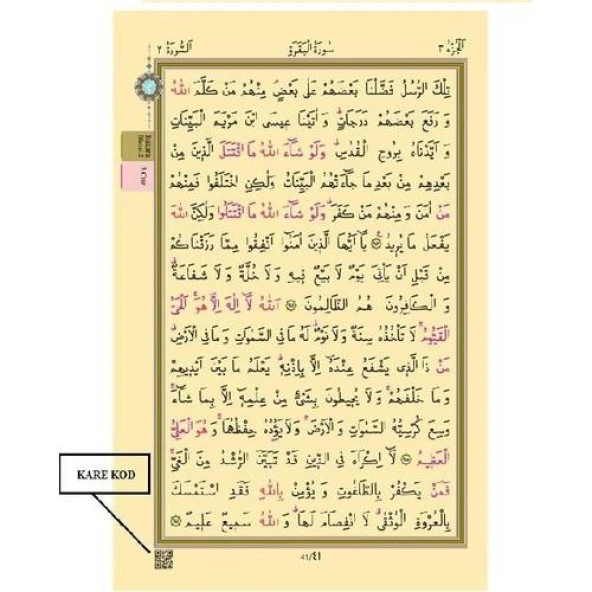 الجزء ٣
سورة البقرة
السورة ٢
تِلْكَ الرُّسُلُ فَضَّلْنَا بَعْضَهُمْ عَلٰى بَعْضٍ مِنْهُمْ مَنْ كَلَّمَ اللّٰهُ
وَ رَفَعَ بَعْضَهُمْ دَرَجَاتٍ وَ اٰتَيْنَا عِيسَى ابْنَ مَرْيَمَ الْبَيِّنَاتِ
وَ اَيَّدْنَاهُ بِرُوحِ الْقُدُسِ وَلَوْ شَٓاءَ اللّٰهُ مَا اقْتَتَلَ الَّذِينَ مِنْ
بَعْدِهِمْ مِنْ بَعْدِ مَا جَٓاءَتْهُمُ الْبَيِّنَاتُ وَلٰكِنِ اخْتَلَفُوا فَمِنْهُمْ
مَنْ اٰمَنَ وَ مِنْهُمْ مَنْ كَفَرَ وَلَوْ شَٓاءَ اللّٰهُ مَا اقْتَتَلُوا وَلٰكِنَّ اللّٰهَ
يَفْعَلُ مَا يُرِيدُ يَٓا اَيُّهَا الَّذِينَ اٰمَنُٓوا اَنْفِقُوا مِمَّا رَزَقْنَاكُمْ
مِنْ قَبْلِ اَنْ يَأْتِيَ يَوْمٌ لَا بَيْعٌ فِيهِ وَ لَا خُلَّةٌ وَ لَا شَفَاعَةٌ
وَ الْكَافِرُونَ هُمُ الظَّالِمُونَ اَللّٰهُ لَٓا اِلٰهَ اِلَّا هُوَ اَلْحَيُّ
الْقَيُّومُ لَا تَأْخُذُهُ سِنَةٌ وَ لَا نَوْمٌ لَهُ مَا فِي السَّمٰوَاتِ وَ مَا فِي الْاَرْضِ
مَنْ ذَا الَّذِي يَشْفَعُ عِنْدَهُٓ اِلَّا بِاِذْنِهِ يَعْلَمُ مَا بَيْنَ اَيْدِيهِمْ
وَ مَا خَلْفَهُمْ وَ لَا يُحِيطُونَ بِشَيْءٍ مِنْ عِلْمِهِٓ اِلَّا بِمَا شَٓاءَ
وَسِعَ كُرْسِيُّهُ السَّمٰوَاتِ وَ الْاَرْضَ وَلَا يَؤُدُهُ حِفْظُهُمَا وَ هُوَ الْعَلِيُّ
الْعَظِيمُ لَٓا اِكْرَاهَ فِي الدِّينِ قَدْ تَبَيَّنَ الرُّشْدُ مِنَ الْغَيِّ
فَمَنْ يَكْفُرْ بِالطَّاغُوتِ وَ يُؤْمِنْ بِاللّٰهِ فَقَدِ اسْتَمْسَكَ
بِالْعُرْوَةِ الْوُثْقٰى لَا انْفِصَامَ لَهَا وَ اللّٰهُ سَمِيعٌ عَلِيمٌ
41/٤١
KARE KOD